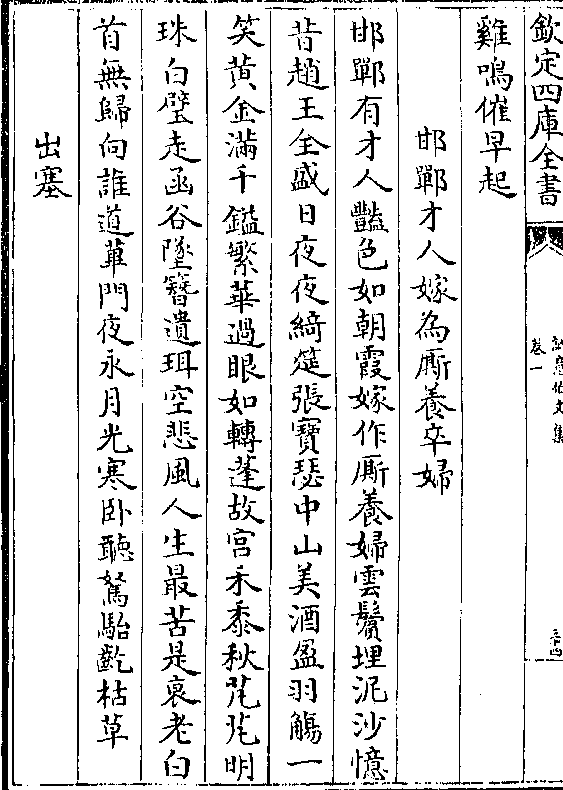 欽定四庫全書
誠意伯文集
卷一
雞鳴催早起
邯鄲才人嫁為厮養卒婦
邯鄲有才人豔色如朝霞嫁作厮養婦雲鬢埋泥沙憶
昔趙王全盛日夜夜綺筵張寶瑟中山美酒盈羽觴一
笑黄金滿千鎰繁華過眼如轉蓬故宫禾黍秋芃芃明
珠白璧走函谷墜簪遺珥空悲風人生最苦是衰老白
首無歸向誰道蓽門夜永月光寒卧聽駑駘齕枯草
出塞